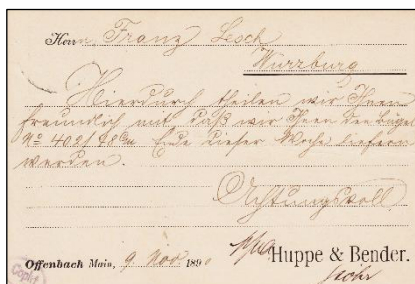 Herrn Franz Lesch
Würzburg
Hierdurch theilen wir Ihnen
freundlich mit, daß wir Ihnen den Bügel
No 402/48 Cm Ende dieser Woche liefern
werden.
Achtungsvoll
Offenbach Main, 9 Nov. 189
Huppe & Bender.